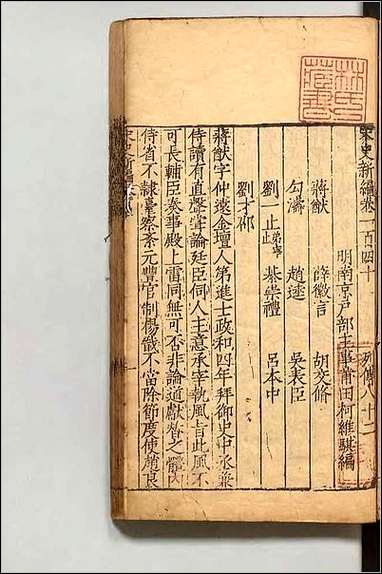 宋史新編卷一百四十
列傳八十二
明南京戶部主事莆田柯維騏編
蔣猷 薛徽言 胡交脩
勾濤 趙逵 吳表臣
劉一止弟寧止 綦崇禮 呂本中
劉才邵
蔣猷字仲遠金壇人第進士政和四年拜御史中丞兼
侍讀有直聲嘗論廷臣伺人主意承宰執風旨此風不
可長輔臣奏事殿上雷同無可否非論道獻替之體內
侍省不隸臺察紊元豐官制楊戩不當除節度使趙良
林氏藏書